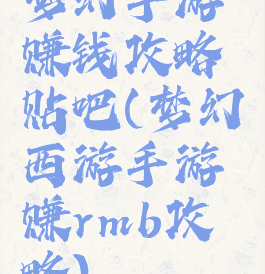 梦幻手游
赚钱攻略
贴吧(梦幻
西游手游
赚rmb攻
略)